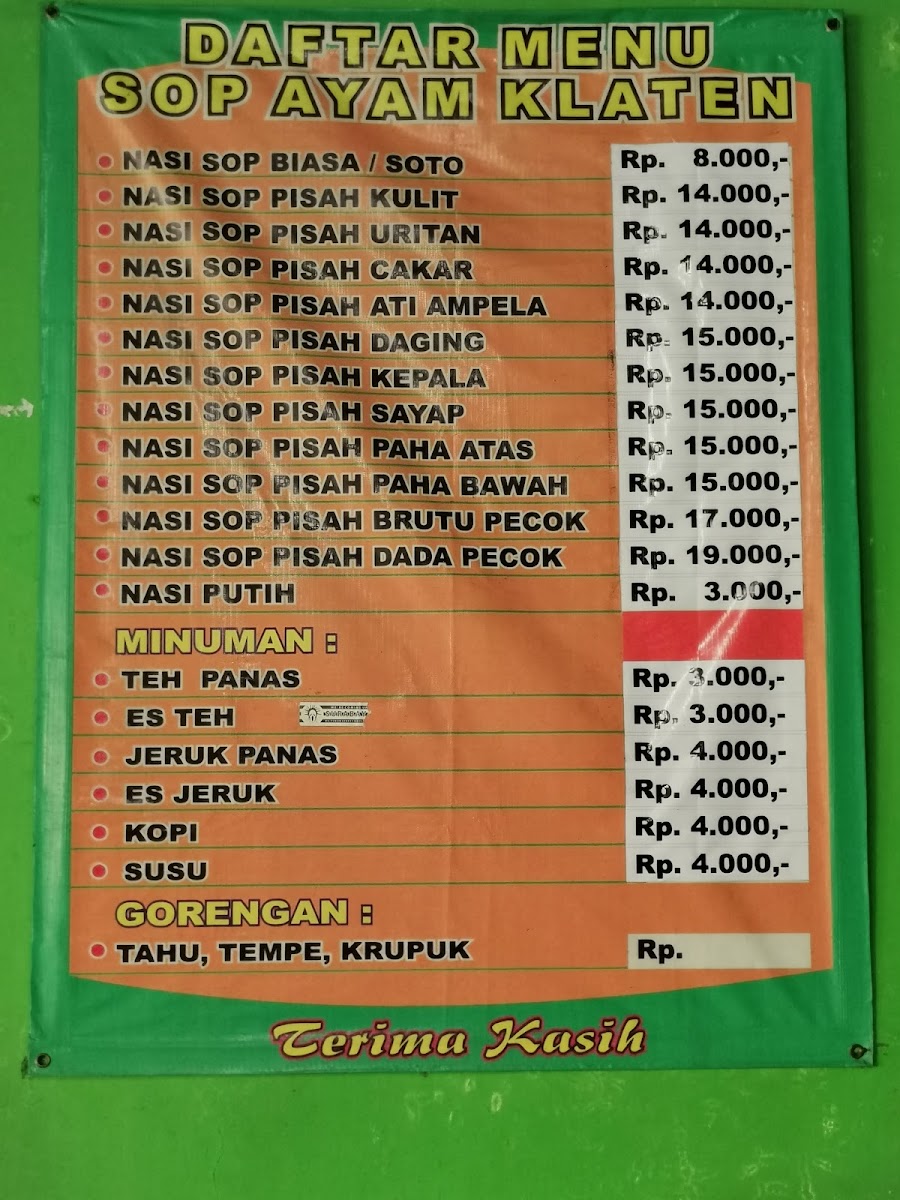 DAFTAR MENU
SOP AYAM KLATEN
NASI SOP BIASA / SOTO Rp. 8.000,-
NASI SOP PISAH KULIT Rp. 14.000,-
NASI SOP PISAH URITAN Rp. 14.000,-
NASI SOP PISAH CAKAR Rp. 14.000,-
NASI SOP PISAH ATI AMPELA Rp. 14.000,-
NASI SOP PISAH DAGING Rp. 15.000,-
NASI SOP PISAH KEPALA Rp. 15.000,-
NASI SOP PISAH SAYAP Rp. 15.000,-
NASI SOP PISAH PAHA ATAS Rp. 15.000,-
NASI SOP PISAH PAHA BAWAH Rp. 15.000,-
NASI SOP PISAH BRUTU PECOK Rp. 17.000,-
NASI SOP PISAH DADA PECOK Rp. 19.000,-
NASI PUTIH Rp. 3.000,-
MINUMAN :
TEH PANAS Rp. 3.000,-
ES TEH Rp. 3.000,-
JERUK PANAS Rp. 4.000,-
ES JERUK Rp. 4.000,-
KOPI Rp. 4.000,-
SUSU Rp. 4.000,-
GORENGAN :
TAHU, TEMPE, KRUPUK Rp.
Terima Kasih